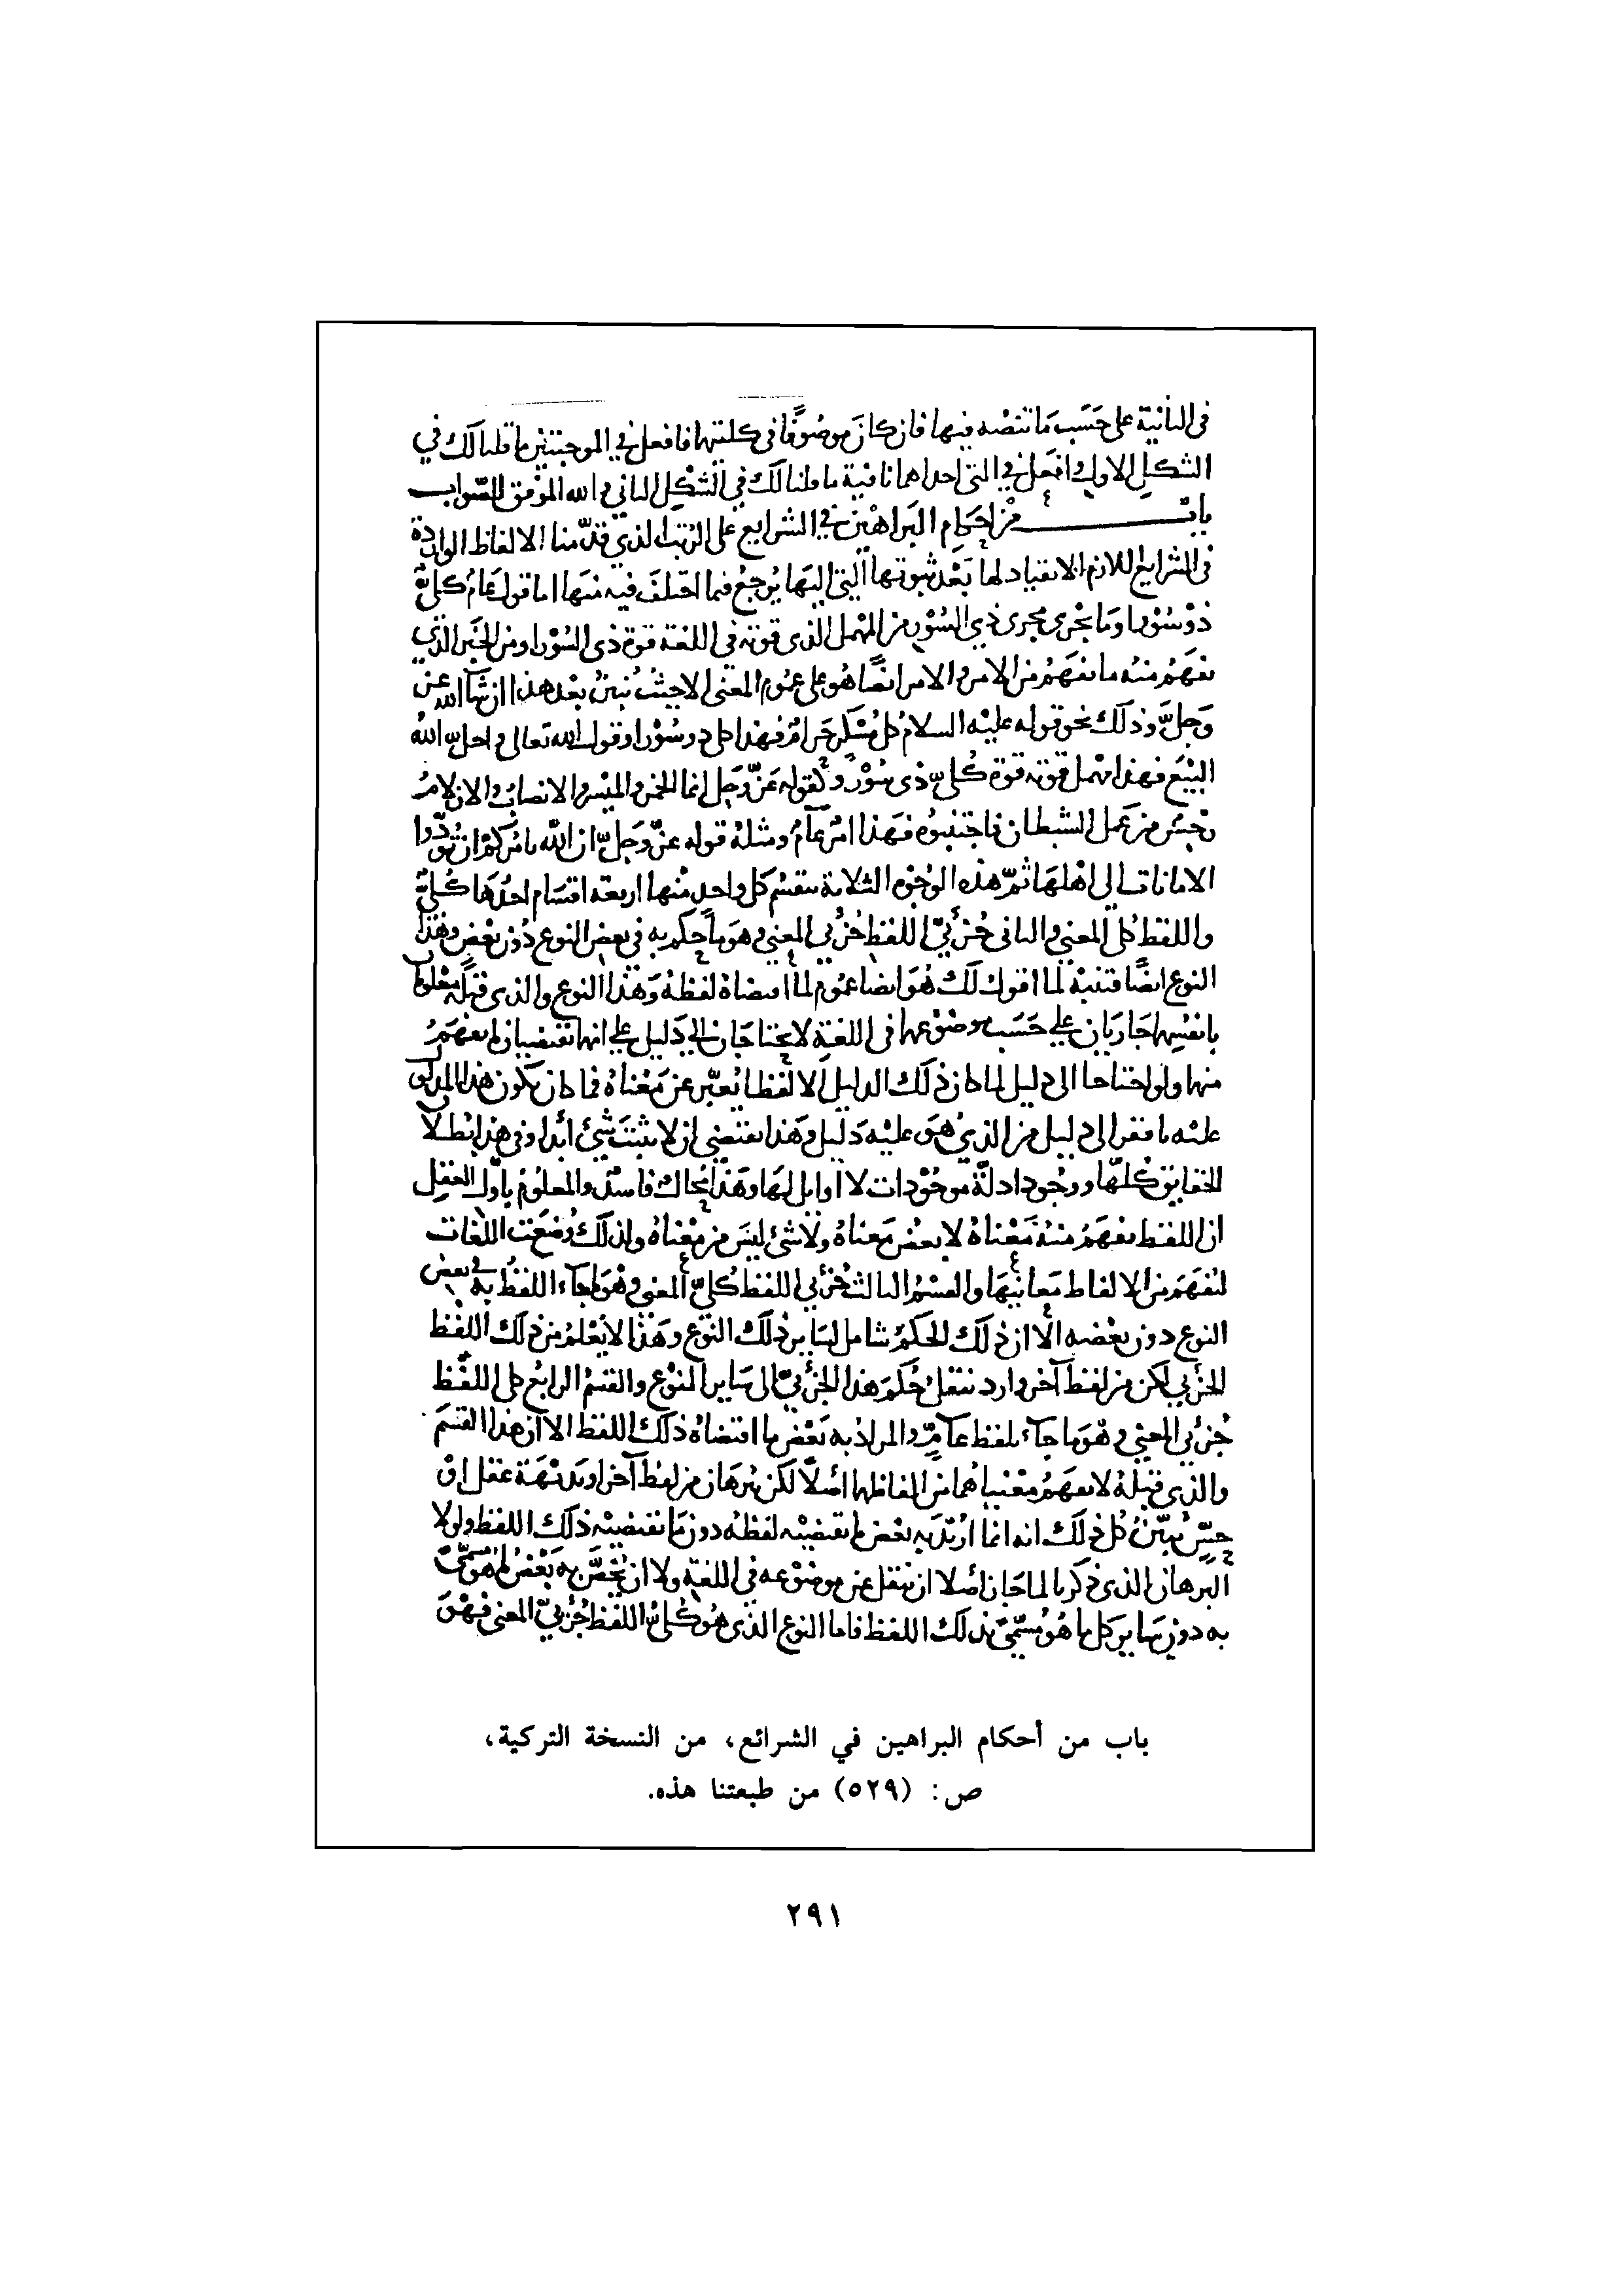 في الثانية على حسب ما تتصه فيها فان كان موصوفا في كليتهما فافعل في الموجبتين ما قلنا لك في
الشكل الاول وافعل في التي احداهما نافية ما قلنا لك في الشكل الثاني والله الموفق للصواب
باب من احكام البراهين في الشرايع على الرتب الذي قدمنا الالفاظ الواردة
في الشرايع اللازم الانقياد لها بعد ثبوتها التي اليها يرجع فيما اختلف فيه منها اما قول عام كلي
ذو سور او ما يجري مجرى ذي السور من المهمل الذي قوته في اللغة قوة ذي السور او من الخبر الذي
نفهم منه ما نفهم من الامر والامر ايضا هو على عموم المعنى لا حيث نبين بعد هذا ان شا الله عز
وجل وذلك نحو قوله عليه السلام كل مسكر حرام فهذا كلي ذو سور او قول الله تعالى واحل الله
البيع فهذا مهمل قوته قوة كلي ذي سور وكقوله عز وجل انما الخمر والميسر والانصاب والازلام
رجس من عمل الشيطان فاجتنبوه فهذا امر عام ومثله قوله عز وجل ان الله يامركم ان تودوا
الامانات الى اهلها ثم هذه الوجوه الثلاثة ينقسم كل واحد منها اربعة اقسام احدها كلي
واللفظ كلي المعنى والثاني جزئي اللفظ جزئي المعنى وهو ما حكم به في بعض النوع دون بعض وهذا
النوع ايضا فتنبه لما اقول لك هو ايضا عموم لما اقتضاه لفظه وهذا النوع والذي قبله معلومان
بانفسهما جاريان على حسب موضوعهما في اللغة لا يحتاجان الى دليل على انهما تقتضيان ما يفهم
منهما ولو احتاجا الى دليل لما كان ذلك الدليل الا لفظا يعبر عن معناه فما كان يكون هذا المدلول
عليه بافقر الى دليل من الذي هو عليه دليل وهذا يقتضي ان لا يثبت شيء ابدا وفي هذا ابطال
الحقايق كلها ووجود ادلة موجودات لا اوايل لها وهذا محال فاسد والمعلوم باول العقل
ان اللفظ يفهم منه معناه لا بعض معناه ولا شيء ليس من معناه ولذلك وضعت اللغات
لتفهم من الالفاظ معانيها والقسم الثالث جزئي اللفظ كلي المعنى وهو ما جاء اللفظ به في بعض
النوع دون بعضه الا ان ذلك الحكم شامل لساير ذلك النوع وهذا لا يعلم من ذلك اللفظ
الجزئي لكن من لفظ آخر وارد بنقل حكم هذا الجزئي الى ساير النوع والقسم الرابع كلي اللفظ
جزئي المعنى وهو ما جاء بلفظ عام والمراد به بعض ما اقتضاه ذلك اللفظ الا ان هذا القسم
والذي قبله لا يفهم معنياهما من الفاظهما اصلا لكن ببرهان من لفظ آخر او بديهة عقل او
حس يبين كل ذلك انه انما اريد به بعض ما يقتضيه لفظه دون ما يقتضيه ذلك اللفظ ولولا
البرهان الذي ذكرنا لما جاز اصلا ان ينقل عن موضوعه في اللغة ولا ان يخص به بعض ما هو مسمى
به دون ساير كل ما هو مسمى بذلك اللفظ فاما النوع الذي هو كلي اللفظ جزئي المعنى فهو
باب من أحكام البراهين في الشرائع، من النسخة التركية،
ص: (٥٢٩) من طبعتنا هذه.
٢٩١